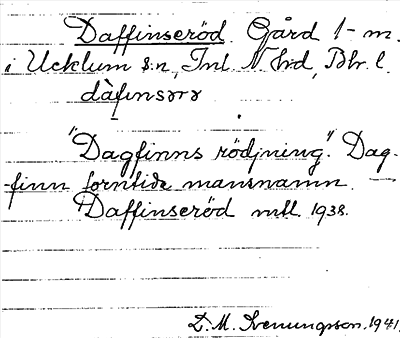 Daffinseröd. Gård 1 - m.
i Ucklum sn, Inl. N. hd, Bhr. l.
dàfinsərə
"Dagfinns rödjning". Dag-
finn forntida mansnamn. —
Daffinseröd mtl. 1938.
D. M. Svenungson. 1941.